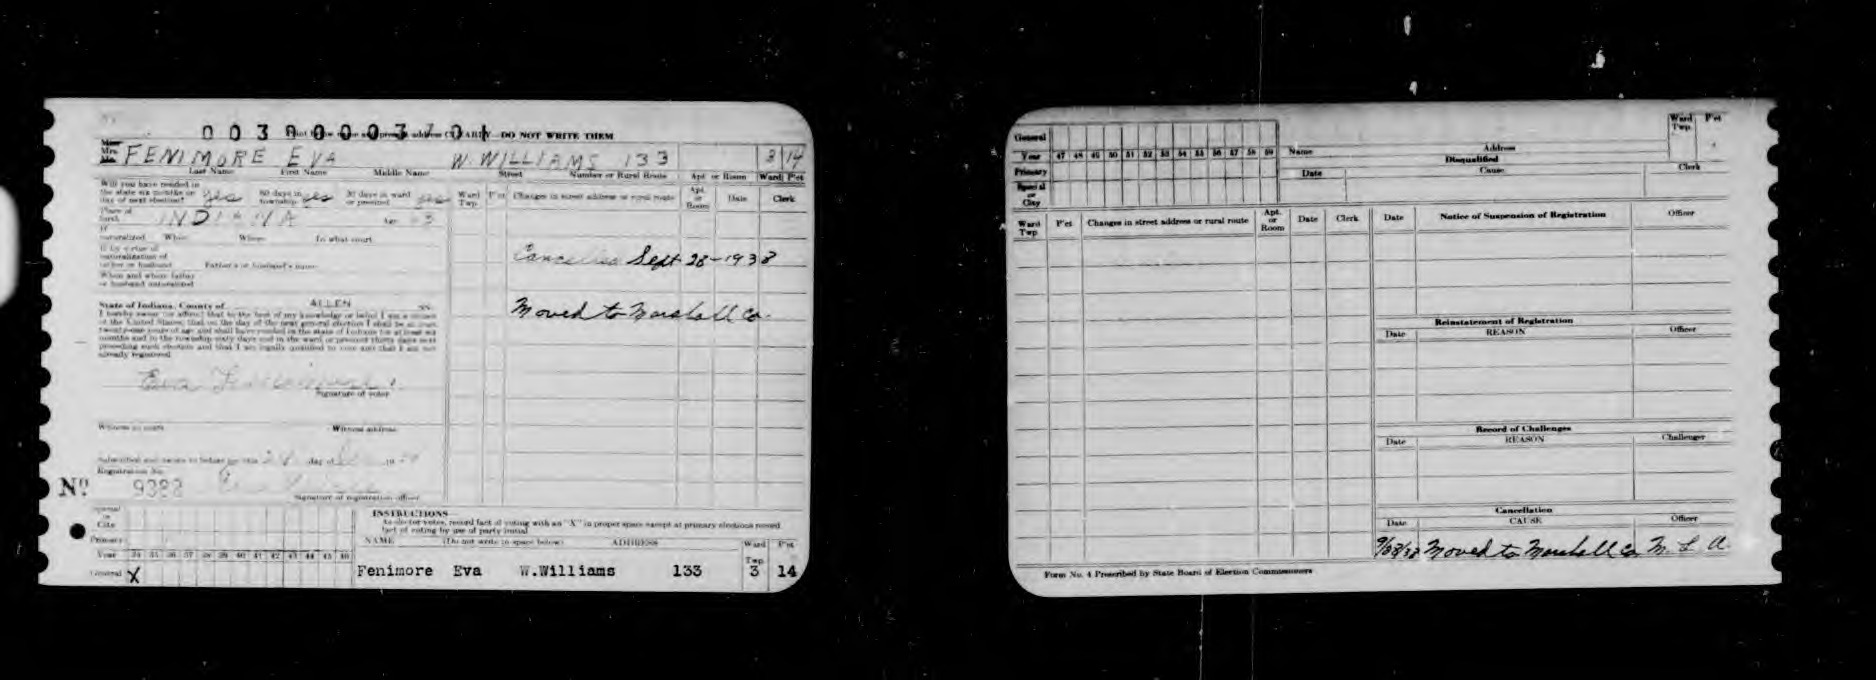 0030000370
DO NOT WRITE THEM
Mrs. FENIMORE EVA W. WILLIAMS 133 3 14
Last Name First Name Middle Name Street Number or Rural Route Apt. or Room Ward P'ct
Will you have resided in the state six months or day of next election? yes 60 days in township yes 30 days in ward or precinct yes
Ward Twp. P'ct Changes in street address or rural route Apt. or Room Date Clerk
Place of birth INDIANA Age
If naturalized When Where In what court
If by virtue of naturalization of father or husband Father's or husband's name
When and where father or husband naturalized
Cancelled Sept 28-1938
Moved to Marshall Co.
State of Indiana, County of ALLEN ss.
I hereby swear (or affirm) that to the best of my knowledge or belief I am a citizen
of the United States; that on the day of the next general election I shall be at least
twenty-one years of age and shall have resided in the state of Indiana for at least six
months and in the township sixty days and in the ward or precinct thirty days next
preceding such election and that I am legally qualified to vote and that I am not
already registered
Eva Fenimore
Signature of voter
Witness to mark Witness address
Subscribed and sworn to before me this day of 19
Registration No.
No. 9388
Signature of registration officer
Special or City
Primary
Year 34 35 36 37 38 39 40 41 42 43 44 45 46
General X
INSTRUCTIONS
As elector votes, record fact of voting with an "X" in proper space except at primary elections record
fact of voting by use of party initial
NAME (Do not write in space below) ADDRESS Ward Twp. P'ct
Fenimore Eva W.Williams 133 3 14
General
Year 47 48 49 50 51 52 53 54 55 56 57 58 59
Primary
Special or City
Name Address Ward Twp. P'ct
Disqualified
Date Cause Clerk
Ward Twp P'ct Changes in street address or rural route Apt. or Room Date Clerk
Date Notice of Suspension of Registration Officer
Reinstatement of Registration
Date REASON Officer
Record of Challenges
Date REASON Challenger
Cancellation
Date CAUSE Officer
9/28/38 Moved to Marshall Co M. L. A.
Form No. 4 Prescribed by State Board of Election Commissioners